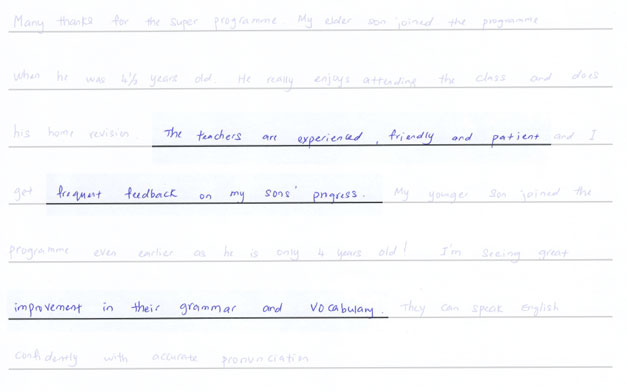 Many thanks for the super programme. My elder son joined the programme
when he was 4½ years old. He really enjoys attending the class and does
his home revision. The teachers are experienced, friendly and patient and I
get frequent feedback on my sons' progress. My younger son joined the
programme even earlier as he is only 4 years old! I'm seeing great
improvement in their grammar and vocabulary. They can speak English
confidently with accurate pronunciation.